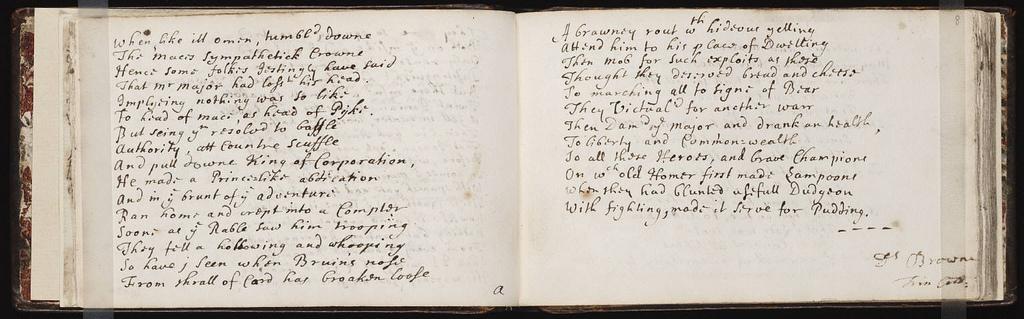 when, like ill omen, tumbl'd downe
The maces Sympathetick Crowne
Hence some folkes Jestingly have said
That mr major had lost his head.
Implyeing nothing was so like
To head of mace, as head of Pyke.
But seing ym resolv'd to baffle
Authority, att Countre Scuffle
And pull downe King of Corporation,
He made a Princelike abdication
And in ye brunt of ye adventure
Ran home and crept into a Compter
Soone as ye Rable saw him trooping
They fell a hollowing and whooping
So have j seen when Bruins nose
From thrall of Cord has broaken loose
a
8
A brawney rout wth hideous yelling
Attend him to his place of Dwelling
Then mob for such exploits as these
Thought they deserved bread and cheese
So marching all to signe of Bear
They Victual'd for another warr
Then Dam'd ye major and drank an health,
To liberty and Common-wealth
So all these Heroes, and brave Champions
On wch old Homer first made Lampoons
When they had blunted usefull Dudgeon
With fighting, made it serve for Pudding.
Browne